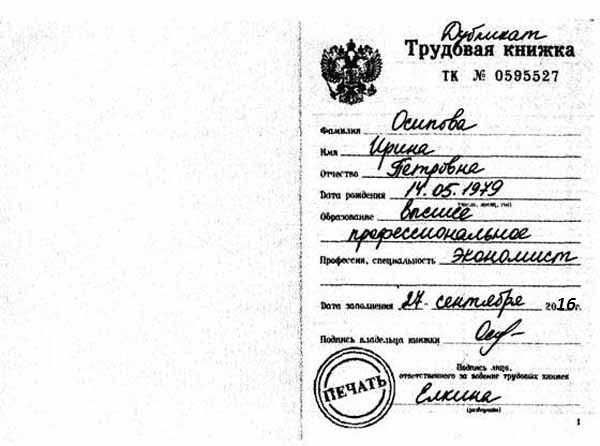 Дубликат
Трудовая книжка
ТК № 0595527
Фамилия Осипова
Имя Ирина
Отчество Петровна
Дата рождения 14.05.1979
(число, месяц, год)
Образование высшее
профессиональное
Профессия, специальность экономист
Дата заполнения 27 сентября 2016г.
Подпись владельца книжки
Подпись лица,
ответственного за ведение трудовых книжек
Елкина
(разборчиво)
ПЕЧАТЬ
1